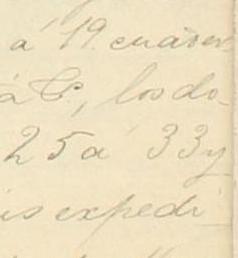 á 19. cuader
á C, los do-
25 á 33 y
is expedi